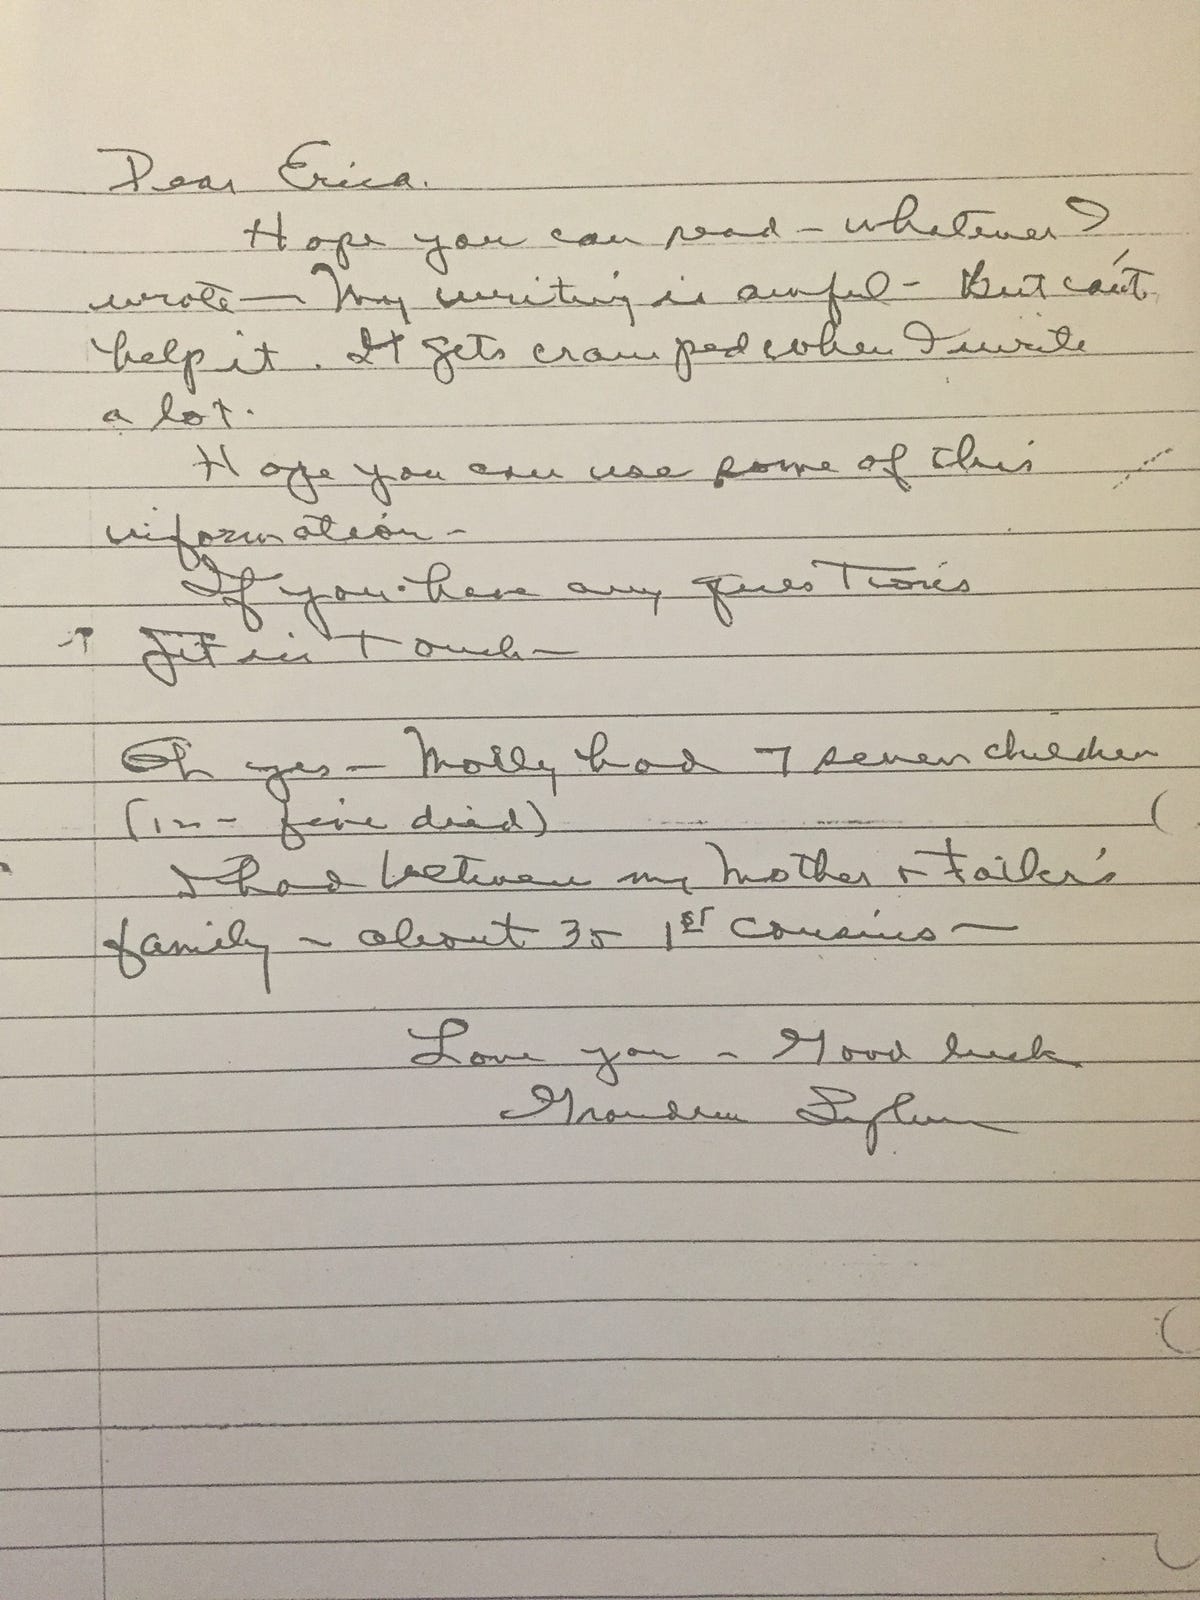 Dear Erica.
Hope you can read - whatever I
wrote - My writing is awful - But can't
help it. It gets cramped when I write
a lot.
Hope you can use some of this
information -
If you have any questions
get in touch -
Oh yes - Molly had 7 seven children
( - five died)
I had between my Mother + Father's
family - about 35 1st cousins -
Love you - Good luck
Grandma